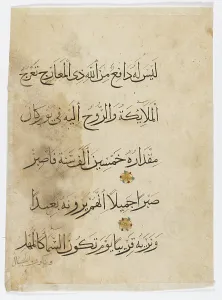 ليس له دافع من الله ذي المعارج تعرج
الملايكة والروح اليه في يوم كان
مقداره خمسين الف سنة فاصبر
صبرا جميلا انهم يرونه بعيدا
ونريه قريبا يوم تكون السما كالمهل